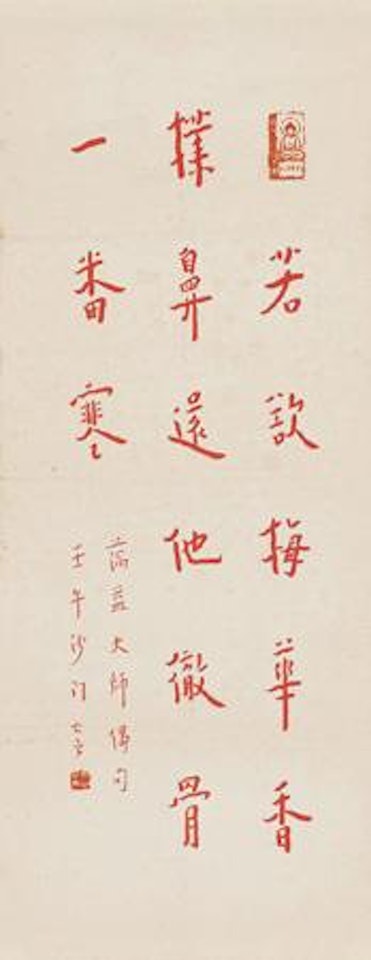 若欲梅華香
撲鼻還他徹骨
一番寒
蕅益大師偈句
壬午沙門